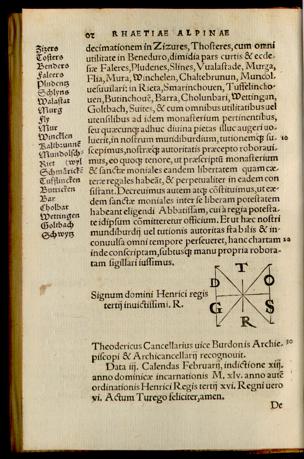 62 RHAETIAE ALPINAE
Zizers
Tosters
Benders
Faleers
Pludentz
Schlyns
Walastat
Murg
Fly
Mur
Wincklen
Kaltbrunnē
Mundolsch
Riet (wyl
Schmäricke
Tufflincken
Butticken
Bar
Cholbar
Wettingen
Goltbach
Schwytz
decimationem in Zizures, Thosteres, cum omni
utilitate in Beneduro, dimidia pars curtis & eccle-
siæ Faleres, Pludenes, Slines, Vualastade, Murga,
Flia, Mura, Winchelen, Chaltebrunun, Muncol-
uesuuilari: in Rieta, Smarinchouun, Tuffelincho-
uun, Butinchouē, Barra, Cholunbari, Wettingan,
Goltbach, Suites, & cum omnibus utilitatibus uel
utensilibus ad idem monasterium pertinentibus,
seu quæcunq; adhuc diuina pietas illuc augeri uo-
luerit, in nostrum mundiburdium, tuitionemq; su- 10
scepimus, nostræq; autoritatis præcepto roboraui-
mus, eo quoq; tenore, ut præscriptū monasterium
& sanctæ moniales eandem libertatem quam cæ-
teræ regales habeāt, & perpetualiter in eadem con
sistant. Decreuimus autem atq; cōstituimus, ut ex-
dem sanctæ moniales inter se liberam potestatem
habeant eligendi Abbatissam, cui à regia potesta-
te id ipsum cōmitteretur officium. Et ut hæc nostri
mundiburdij uel tutionis autoritas stabilis & in-
conuulsa omni tempore perseueret, hanc chartam 20
inde conscriptam, subtusq; manu propria robora-
tam sigillari iussimus.
Signum domini Henrici regis
tertij inuictissimi. R.
T
D O
G S
R
Theodericus Cancellarius uice Burdonis Archie- 30
piscopi & Archicancellarij recognouit.
Data iij. Calendas Februarij, indictione xiij.
anno dominicæ incarnationis M. xlv. anno autē
ordinationis Henrici Regis tertij xvi. Regni uero
vi. Actum Turego feliciter, amen.
De